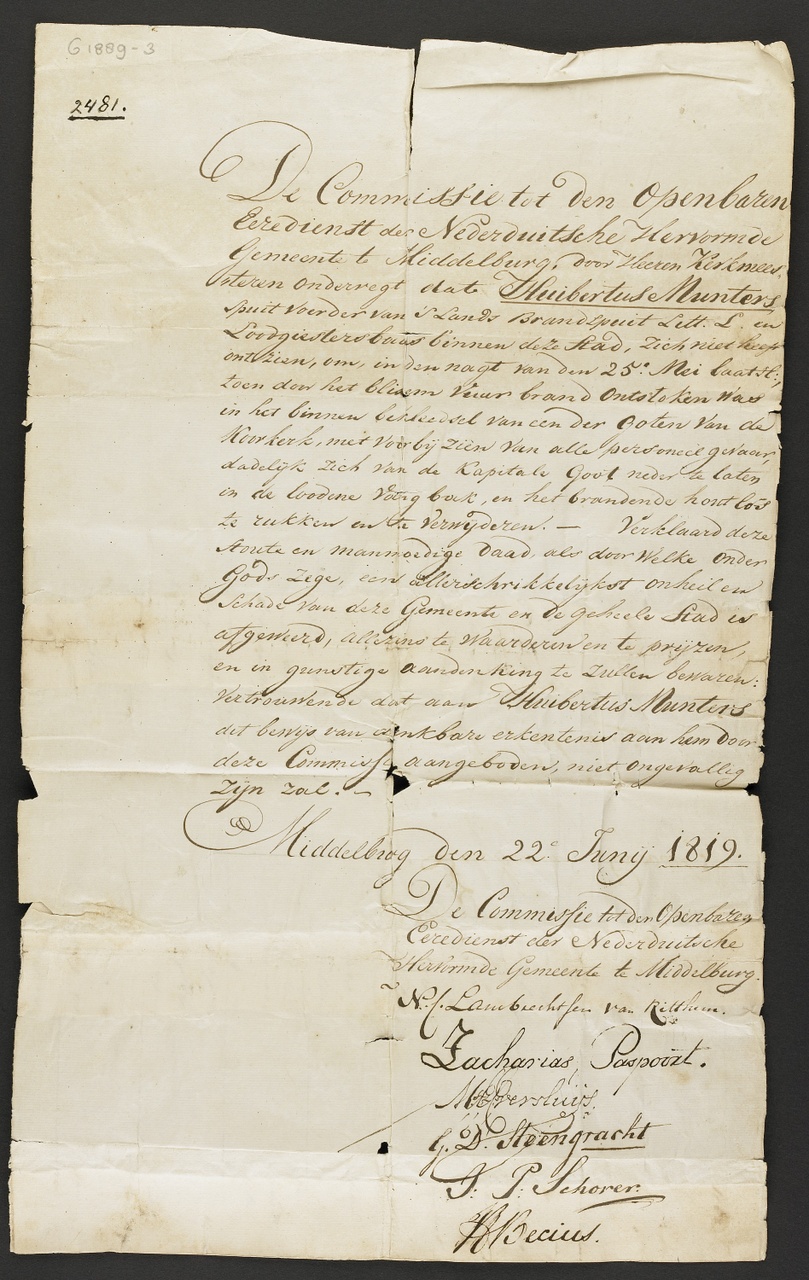 G 1889-3
2481.
De Commissie tot den Openbaren
Eeredienst der Nederduitsche Hervormde
Gemeente te Middelburg, door Heeren Kerkmees,
steren onderregt dat Huibertus Munters
spuit Voerder van 's Lands Brandspuit Lett. L. en
Loodgietersbaas binnen deze Stad, zich niet heeft
ontzien, om, in den nagt van den 25e Mei laatstl:
toen door het blixem vuur brand ontstoken was
in het binnen bekleedsel van een der Goten van de
Koorkerk, met voorbij zien van alle personeel gevaar,
dadelijk zich van de Kapitale Goot neder te laten
in de loodene Vang bak, en het brandende hout los
te rukken en te verwijderen. — Verklaard deze
stoute en manmoedige daad, als door welke onder
Gods Zege, een allerschrikkelijkst onheil en
schade van deze Gemeente en de geheele Stad is
afgeweerd, allezins te Waarderen en te prijzen,
en in gunstige aandenking te zullen bewaren:
Vertrouwende dat aan Huibertus Munters
dit bewijs van dankbare erkentenis aan hem door
deze Commissie aangeboden, niet ongevallig
zijn zal. —
Middelburg den 22e Junij 1819.
De Commissie tot den Openbaren
Eeredienst der Nederduitsche
Hervormde Gemeente te Middelburg.
N. C. Lambrechtsen van Ritthem.
Zacharias Paspoort.
Versluijs.
G. D. Steengracht
J. P. Schorer.
Becius.